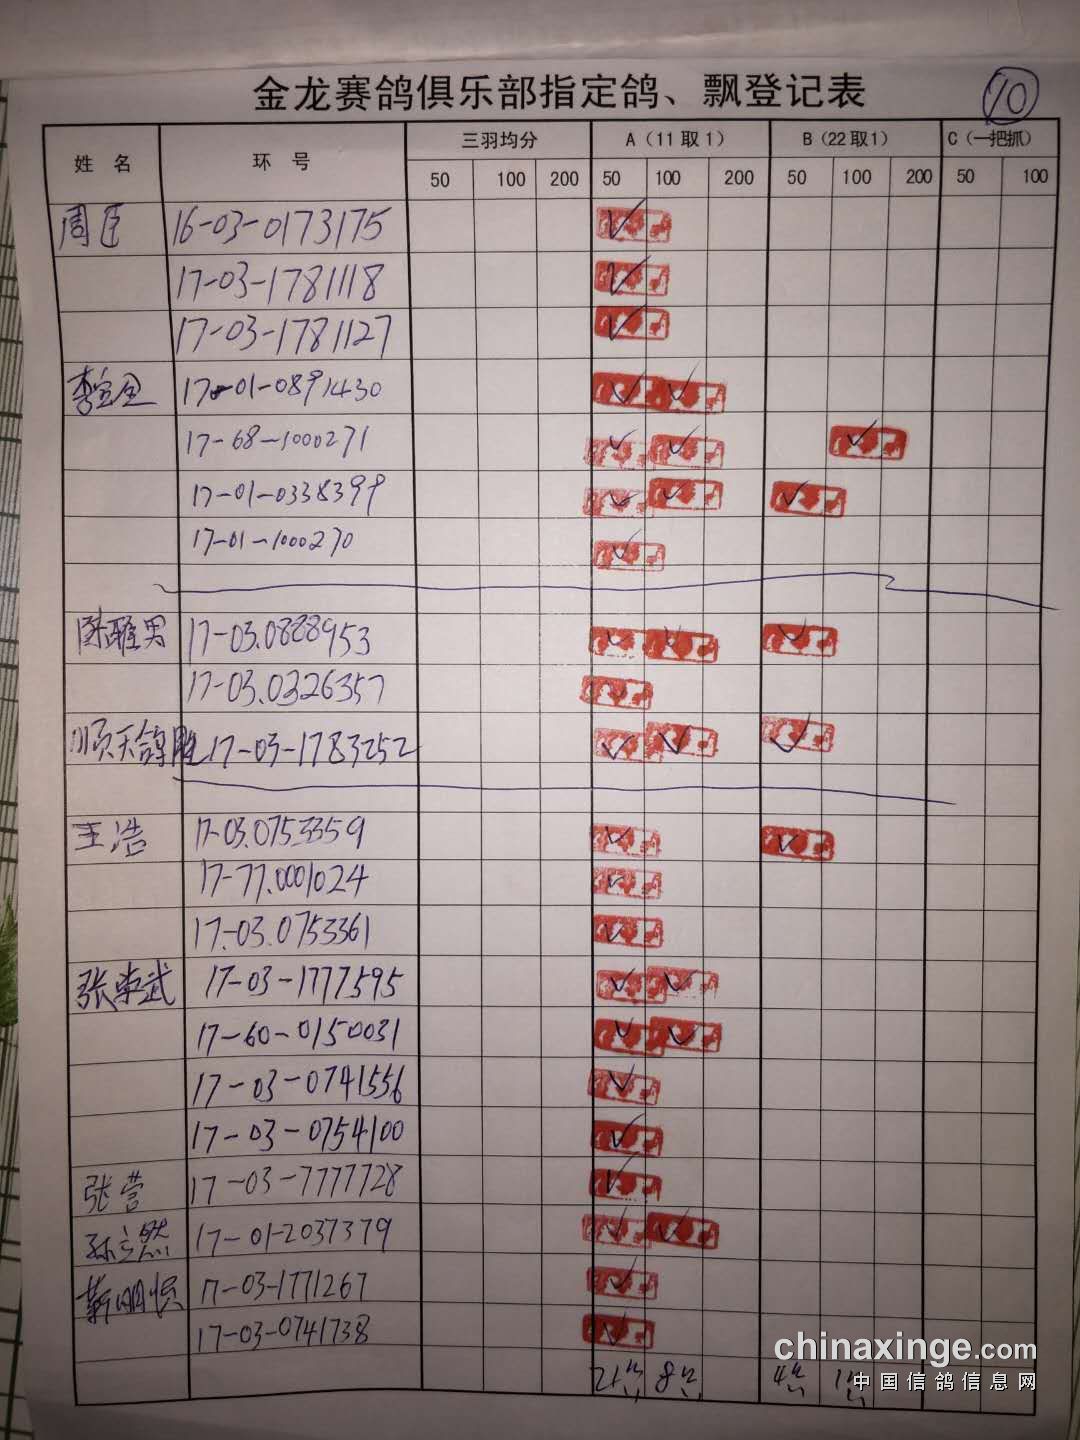 金龙赛鸽俱乐部指定鸽、飘登记表 10
姓名 环号 三羽均分 A（11取1） B（22取1） C（一把抓）
50 100 200 50 100 200 50 100 200 50 100
周臣 16-03-0173175 ✓
17-03-1781118 ✓
17-03-1781127 ✓
李宝金 17-01-0891430 ✓ ✓
17-68-1000271 ✓ ✓ ✓
17-01-0338399 ✓ ✓ ✓
17-01-1000270 ✓
陈雕男 17-03.0888953 ✓ ✓ ✓
17-03.0326357 ✓
顺天鸽 17-03-1783252 ✓ ✓ ✓
王浩 17-03.0753359 ✓ ✓
17-77.0001024 ✓
17-03.0753361 ✓
张荣武 17-03-1777595 ✓ ✓
17-60-0150031 ✓ ✓
17-03-0741556 ✓
17-03-0754100 ✓
张营 17-03-7777728 ✓
孙立然 17-01-2037379 ✓ ✓
靳明 17-03-1771267 ✓
17-03-0741738 ✓
21 8 4 1
chinaxinge.com
中国信鸽信息网